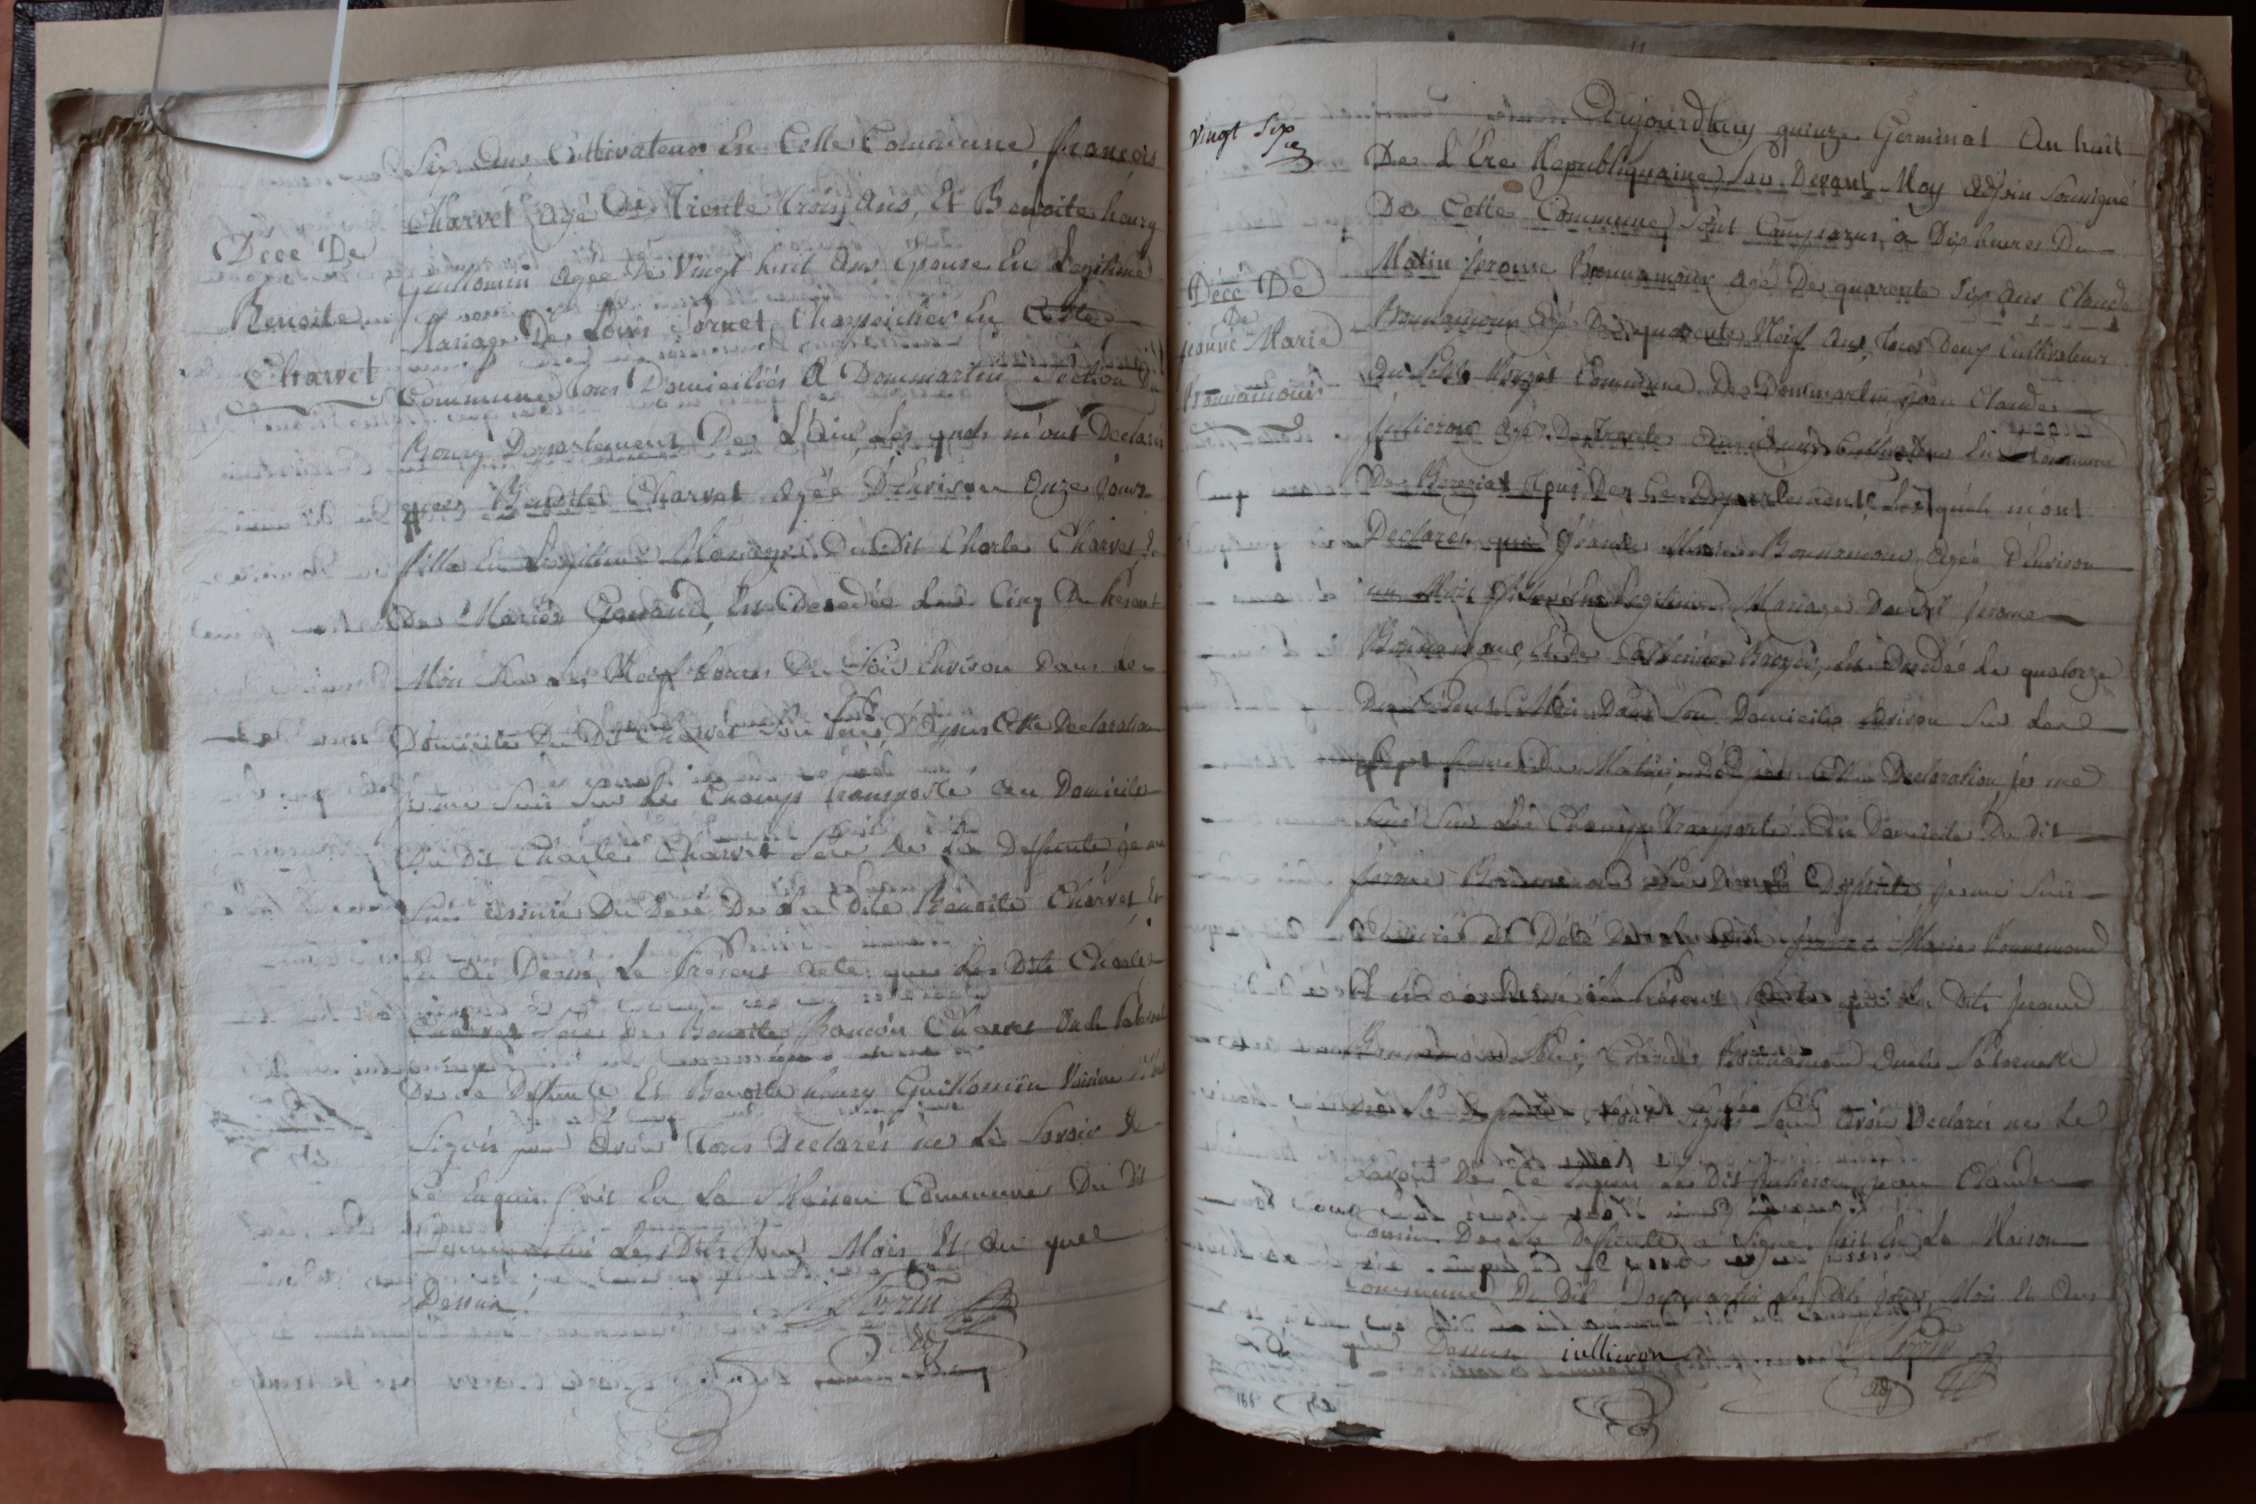 Six ans Cultivateur En Cette Commune, françois
Charvet agé De Trente trois ans, Et Benoite
Guillomin agée De Vingt huit ans Epouse En Legitime
Mariage De Louis Cornet Charpentier En Cette
Commune tous Domiciliés A Dommartin Section De
Bourg Departement De L'Ain, Les quels m'ont Declarés
que Benoite Charvet agée D'Environ Onze jours
fille En Legitime Mariage Du Dit Charle Charvet &
De Marie Gonand, Est Decedée Le Cinq Du Présent
Mois Sur Les Neuf heures Du Soir Environ Dans Le
Domicile Du Dit Charvet Son Pere, D'Apres Cette Declaration
je me Suis Sur Le Champ transporté Au Domicile
Du Dit Charle Charvet Père De La Deffunte je me
Suis Assuré Du Décé De La Dite Benoite Charvet Et
ai Dressé Le Présent Acte que Les Dits Charle
Charvet Père De Benoite françois Charvet Oncle Paternel
De La Deffunte Et Benoite Guillomin Voisine N'ont
Signés pour Avoir Tous Declarés ne Le Savoir De
Ce Enquis fait En La Maison Commune Du Dit
Dommartin Les Dits Jour Mois Et An que
Dessus
Décé De
Benoite
Charvet
Vingt Six
Aujourdhuy quinze Germinal An huit
De L'Ere Republiquaine, Par Devant Moy Adjoin Sousigné
De Cette Commune, Sont Comparus, à Dix heures Du
Matin Jerome Bonnamour Agé De quarente Six ans Claude
Bonnamour Agé De quarente Neuf ans, Tous Deux Cultivateur
Commune De Dommartin Jean Claude
Jullieron Agé De Trente ans Cultivateur En La Commune
De Bereziat Tous De Ce Departement, Les quels m'ont
Declarés que Jeanne Marie Bonnamour Agée D'Environ
un Mois fille En Legitime Mariage Du Dit Jerome
Bonnamour, Et De Catherine, Est Decedée Le quatorze
Du Présent Mois Dans Son Domicile Environ Sur Les
Sept heures Du Matin, D'Apres Cette Declaration je me
Suis Sur Le Champ Transporté Au Domicile Du Dit
Jerome Bonnamour Père De La Deffunte je me Suis
Assuré Du Décé De La Dite Jeanne Marie Bonnamour
Le Présent Acte que Les Dits Jerome
Bonnamour Père, Claude Bonnamour Oncle Paternelle
De La Deffunte N'ont Signés pour Avoir Declarés ne Le
Savoir De Ce Enquis Le Dit Jullieron Jean Claude
Cousin De La Deffunte A Signé fait En La Maison
Commune Du Dit Dommartin Les Dits jour Mois Et An
que Dessus jullieron
Décé De
De
Jeanne Marie
Bonnamour